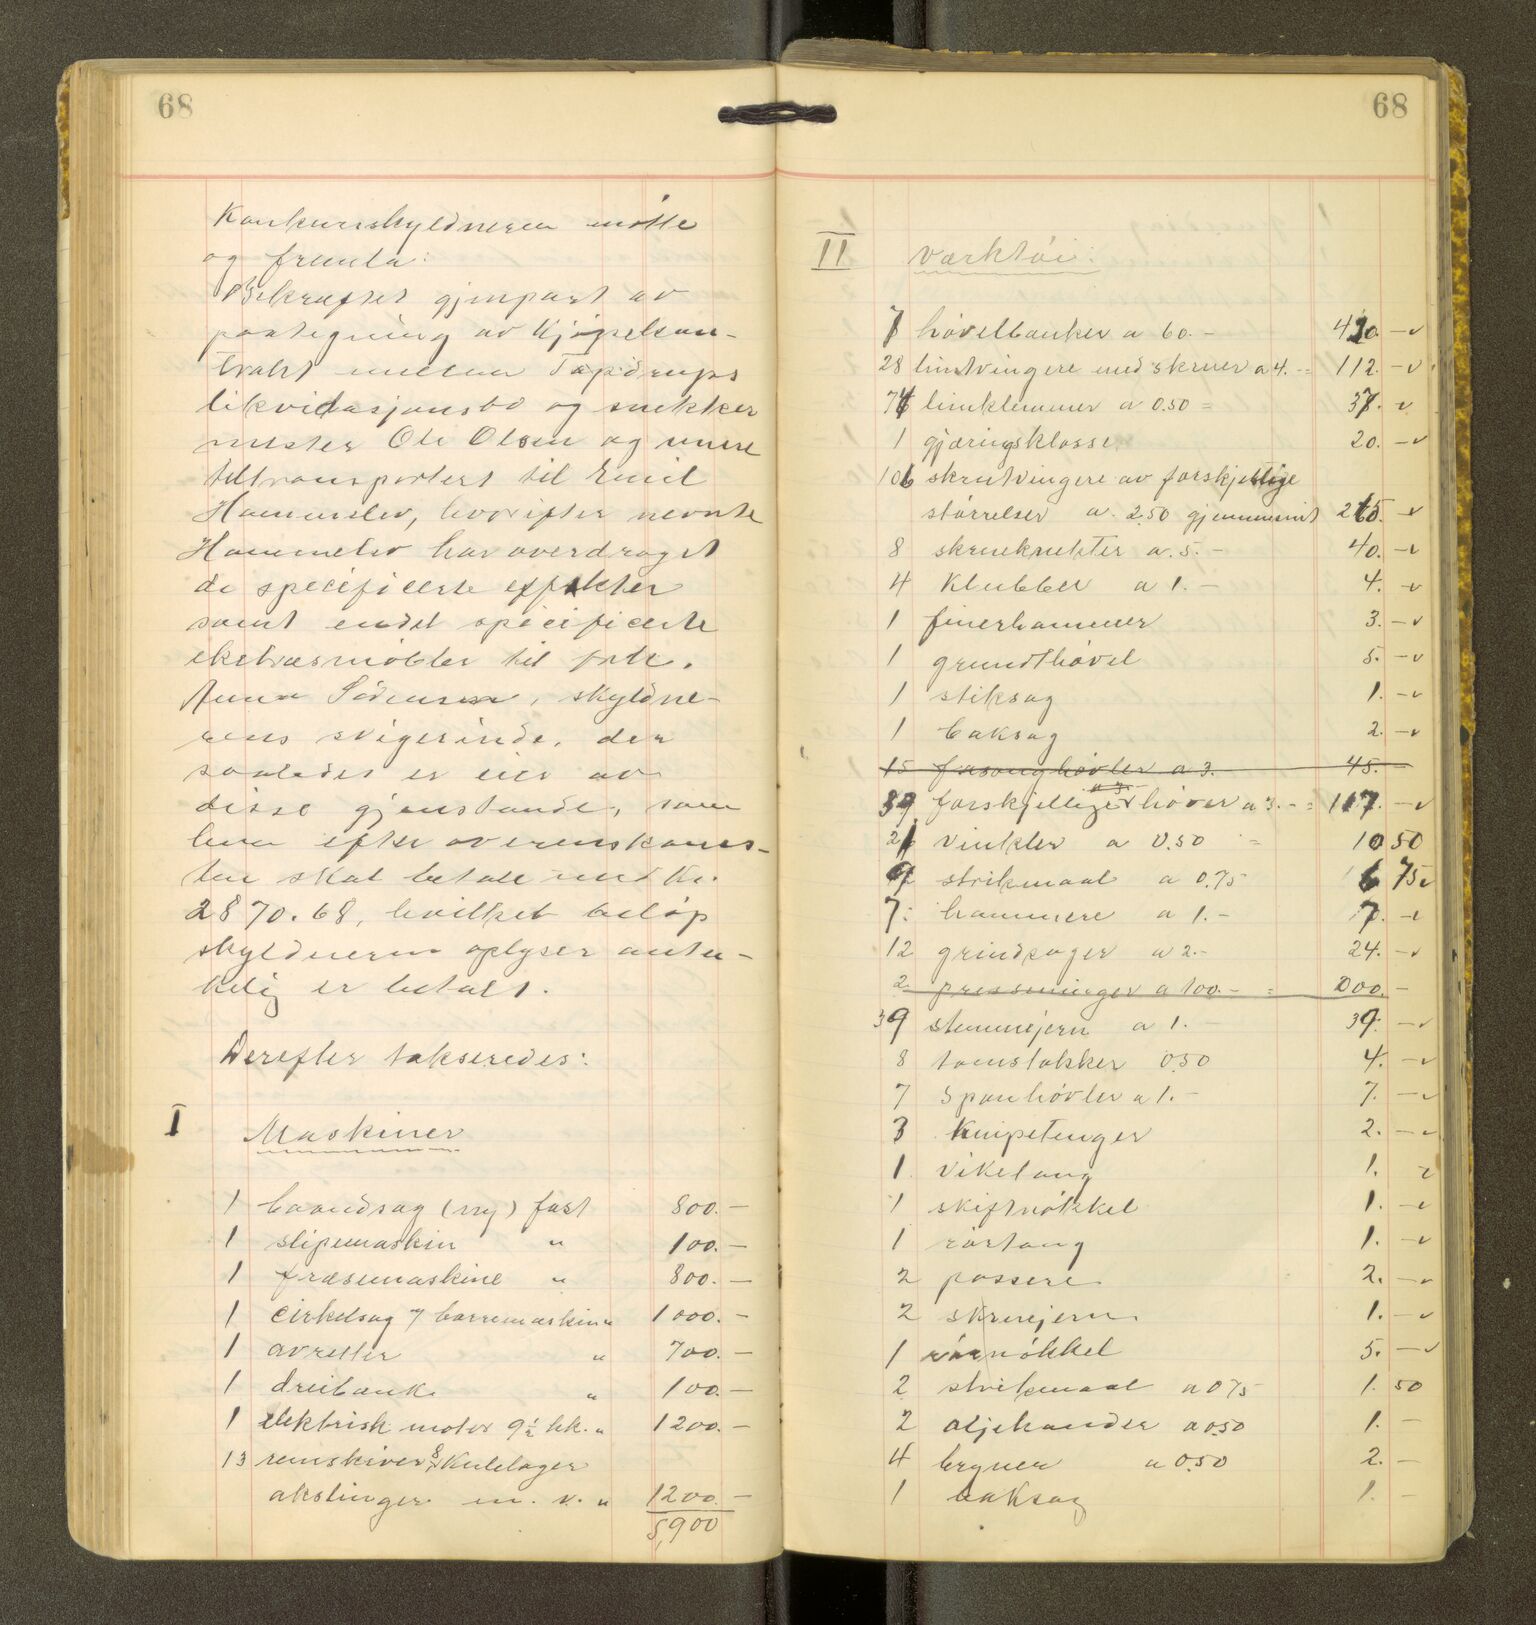 68
Konkursskyldneren møtte
og fremla:
Bekræftet gjenpart av
paategning av kjøpekon-
trakt mellem Tapdrups
likvidasjonsbo og snekker
mester Ole Olsen og
tiltransportert til Emil
Hammelev, hvorefter nevnte
Hammelev har overdraget
de specificerte effekter
samt endel specificerte
eketræsmøbler til frk.
Anna Sørensen, skyldne-
rens svigerinde, der
saaledes er eier av
disse gjenstande, som
hun efter overenskoms-
ten skal betale med Kr.
2870.68, hvilket beløp
skyldneren oplyser anten-
kelig er betalt.
Derefter takseredes:
I Maskiner
1 baandsag (ny) fast 800.-
1 slipemaskin " 100.-
1 fræsemaskine " 800.-
1 cirkelsag og borremaskin " 1000.-
1 avretter " 700.-
1 dreibank " 100.-
1 elektrisk motor 9½ hk. " 1200.-
13 remskiver, 8 kulelager
akslinger m. v. " 1200.-
5,900
68
II Værktøi:
7 høvelbanker a 60.- 420.-
28 limtvingere med skruer a 4.- = 112.-
74 limklemmer a 0.50 = 37.-
1 gjæringsklosse 20.-
106 skrutvingere av forskjellige
størrelser a 2.50 gjennemsnit 265.-
8 skruknekter a 5.- 40.-
4 klubber a 1.- 4.-
1 finerhammer 3.-
1 grundthøvel 5.-
1 stiksag 1.-
1 baksag 2.-
15 fasonghøvler a 3. 45.-
39 forskjellige høvler a 3.- = 117.-
21 vinkler a 0.50 = 10 50
9 strikmaal a 0.75 6 75
7 hammere a 1.- 7.-
12 grindsager a 2.- 24.-
2 pressninger a 100.- = 200.-
39 stemmejern a 1.- 39.-
8 tomstokker 0.50 4.-
7 Spanhøvler a 1.- 7.-
3 Knipetenger 2.-
1 vikelang 1.
1 skiftnøkkel 1.-
1 rørtang 1.-
2 passere 2.-
2 skruejern 1.-
1 rørnøkkel 5.-
2 strikmaal a 0.75 1. 50
2 oljekander a 0.50 1.-
4 bryner a 0.50 2.-
1 baksag 1.-